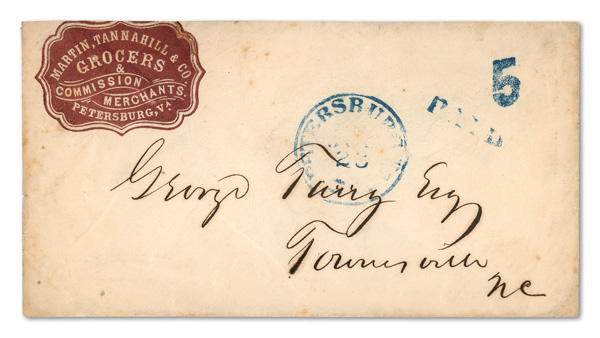 MARTIN, TANNAHILL & CO
GROCERS
&
COMMISSION
MERCHANTS.
PETERSBURG, VA
5
PAID
PETERSBURG
28
George Tarry Esq
Townesville
NC